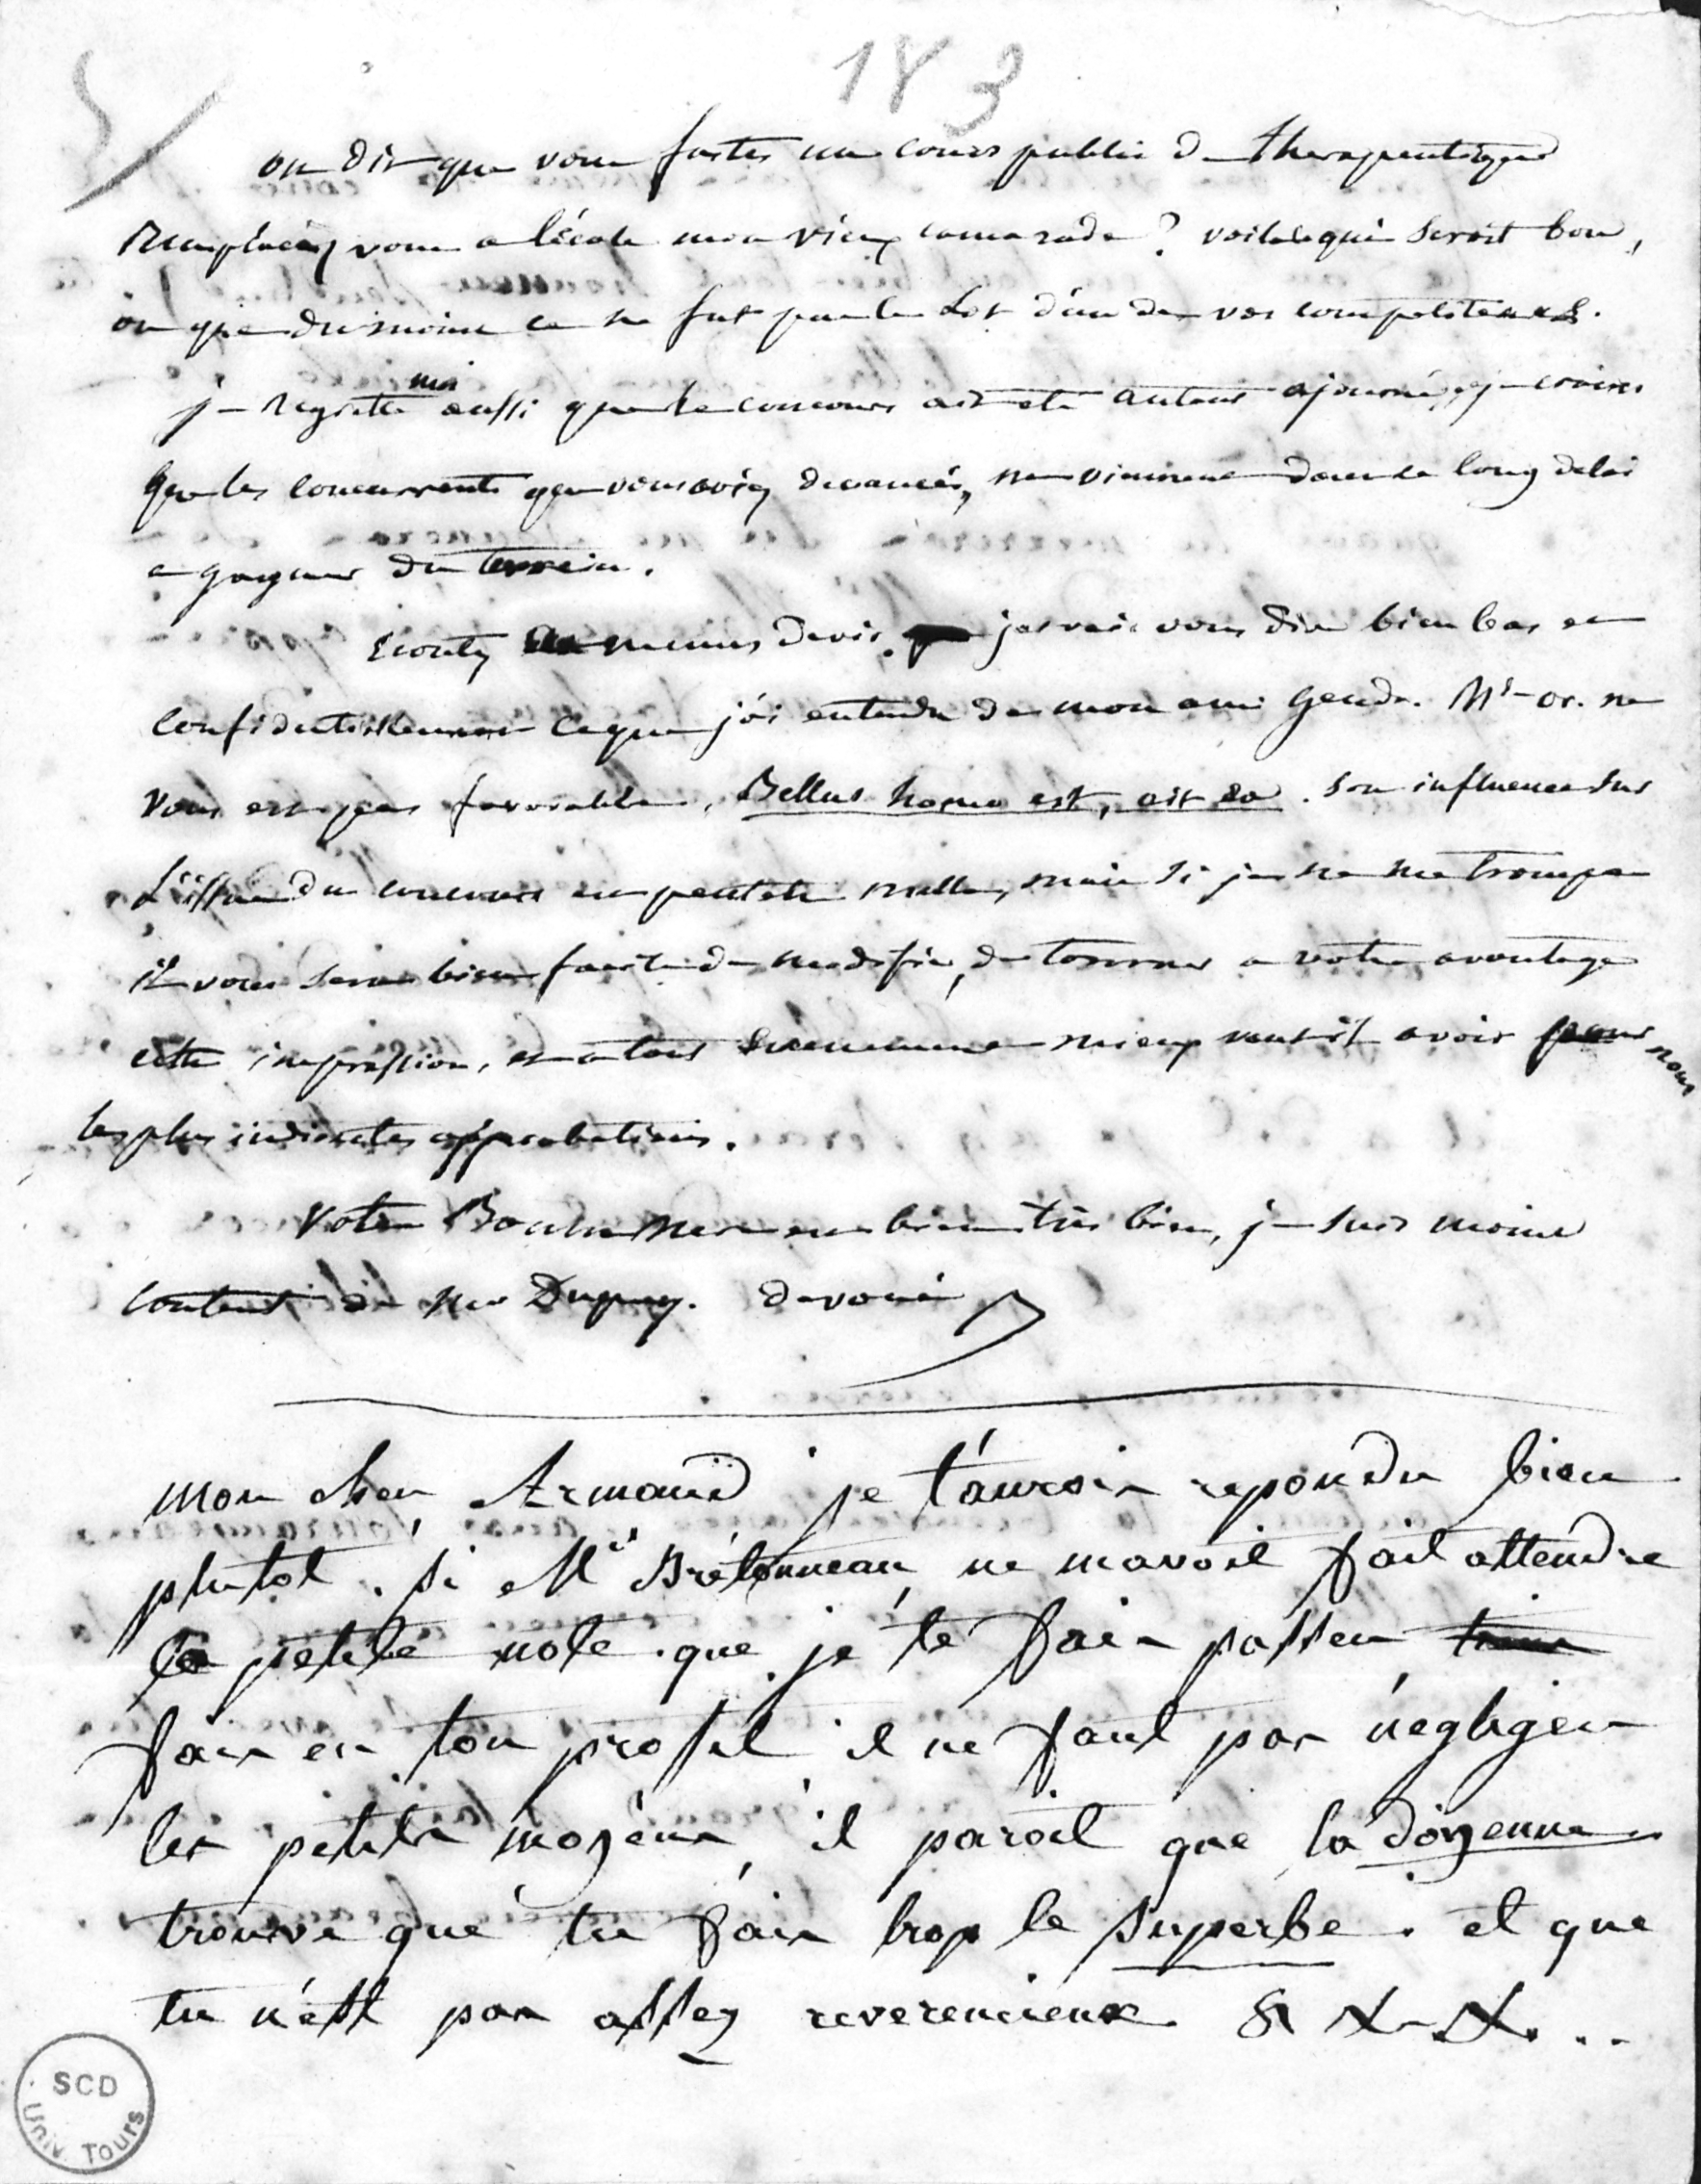 183
on dit que vous faites un cours public de therapeutique
Remplacez vous a l'école mon vieux camarade? voila ce qui seroit bon,
ou que du moins ce ne fut pas le lot d'un de vos competiteurs.
je regrette moi aussi que le concours ait eté autant ajourné, je crains
que les concurrents que vous aviez devancés, ne viennent dans ce long delai
a gagner du terrein.
Ecoutez menus devis. je vais vous dire bien bas et
confidentiellement ce que j'ai entendu de mon ami Gendr. Mr or. ne
vous est pas favorable. Bellus homo est, ait ea. son influence sur
l'issue du concours est peutetre nulle, mais si je ne me trompe
il vous sera bien facile de modifier, de tourner a votre avantage
cette impression, et a tout evenement mieux vaut il avoir pour nous
les plus indirectes approbations.
Votre mere va bien très bien, je suis moins
content de Me Dupuy. devoué
mon cher Armand je t'aurois repondu bien
plutot. si Mr Brétonneau ne mavoit fait attendre
la petite note que je te fais passer
fais en ton profit il ne faut pas négliger
les petits moyéns, il paroit que la doÿenne
trouve que tu fais trop le superbe. et que
tu n'est pas assez reverencieux & & &. ..
SCD
Univ. TOURS